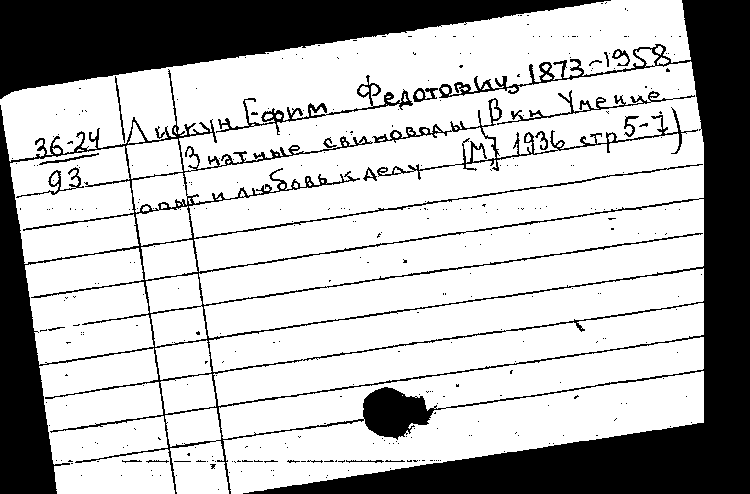 36-24
93.
Лискун Ефим Федотович, 1873-1958
Знатные свиноводы (В кн Умение
опыт и любовь к делу [М] 1936 стр 5-7)